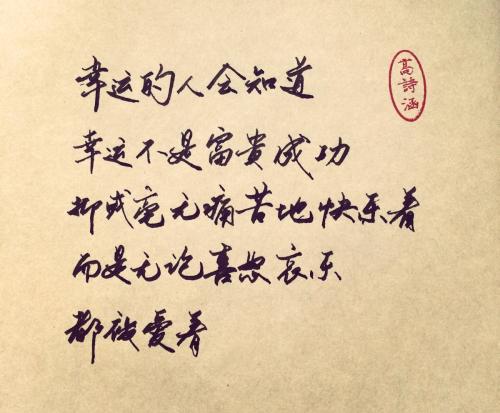 幸运的人会知道
幸运不是富貴成功
抑或毫无痛苦地快乐着
而是无论喜怒哀乐
都被爱着
高詩涵